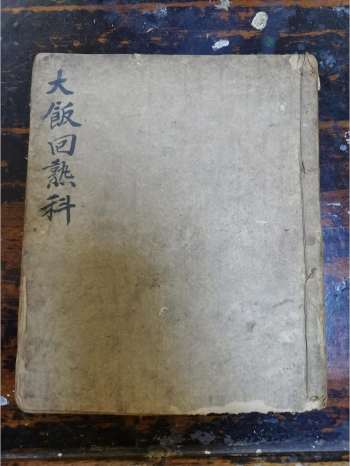 大飯回熟科